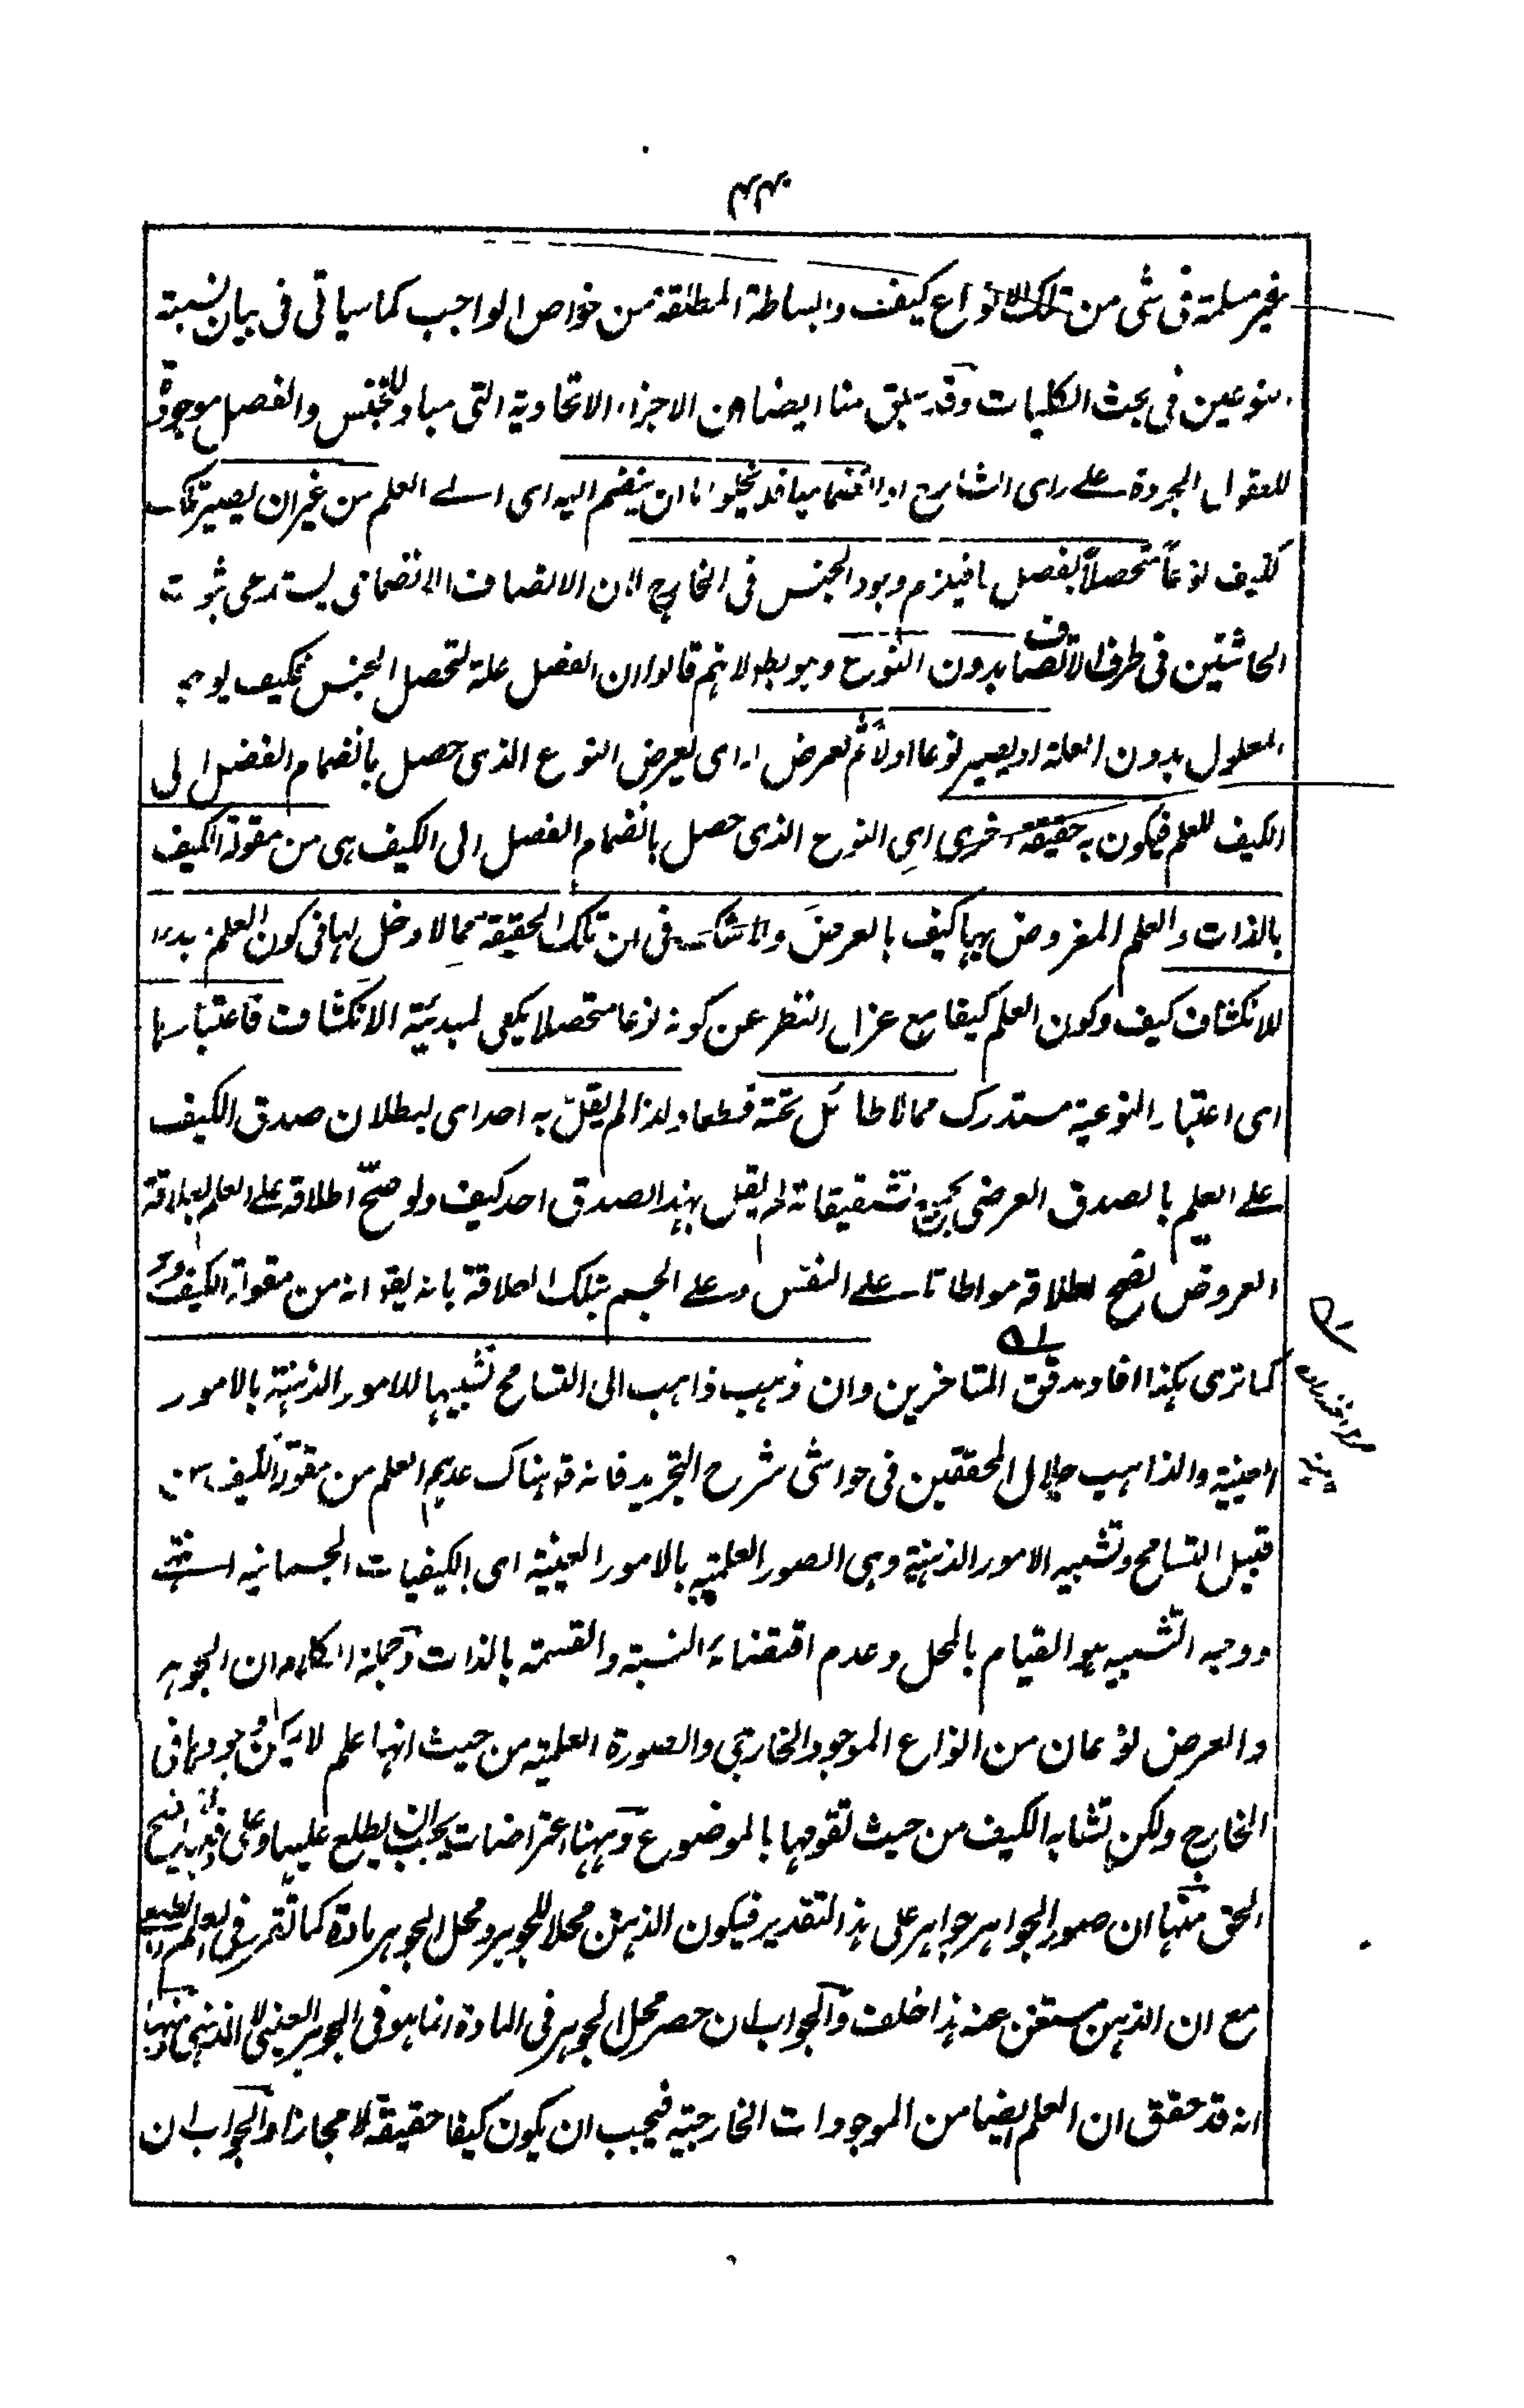 غير مسلمة فى شى من تلك الانواع كيف والبساطة المطلقة من خواص الواجب كما سياتى فى بيان نسبة
النوعين فى بحث الكليات وقد سبق منا ايضا ان الاجزاء الاتحادية التى مباد للجنس والفصل موجودة
للعقول المجردة على راى الشارح او انضماميا فلا يخلو اما ان ينضم اليه اى الى العلم من غير ان يصير تلك
كيف نوعاً متحصلاً بفصل ما فيلزم وجود الجنس فى الخارج لان الاتصاف الانضمامى يستدعى ثبوت
الحاشتين فى ظرف الاتصاف بدون النوع وهو بط لانهم قالوا ان الفصل علة لتحصل الجنس فكيف يوجد
المعلول بدون العلة او يصير نوعا اولاً ثم يعرض له اى يعرض النوع الذى حصل بانضمام الفصل الى
الكيف للعلم فيكون به حقيقة اخرى اى النوع الذى حصل بانضمام الفصل الى الكيف هى من مقولة الكيف
بالذات والعلم المفروض بها كيف بالعرض ولا شك فى ان تلك الحقيقة مما لا دخل لها فى كون العلم مبدءا
للانكشاف كيف وكون العلم كيفا مع عزل النظر عن كونه نوعا متحصلا يكفى لمبدئية الانكشاف فاعتبارها
اى اعتبار النوعية مستدرك مما لا طائل تحته قطعا ولذا لم يقل به احد اى لبطلان صدق الكيف
على العلم بالصدق العرضى بجميع تشقيقاته لم يقل بهذا الصدق احد كيف ولو صحّ اطلاقه على العلم بعلاقة
العروض لصح اطلاقه مواطاتا على النفس وعلى الجسم بتلك العلاقة بانه يقو انه من مقولة الكيف وهو
كما ترى هكذا افاد مدقق المتاخرين وان ذهب ذاهب الى التسامح تشبيها للامور الذهنية بالامور
العينية والذاهب جلال المحققين فى حواشى شرح التجريد فانه قد هناك عدهم العلم من مقولة الكيف من
قبيل التسامح وتشبيه الامور الذهنية وهى الصور العلمية بالامور العينية اى الكيفيات الجسمانيه انتهى
ووجه التشبيه هو القيام بالمحل وعدم اقتضاء النسبة والقسمة بالذات وجملة الكلام ان الجوهر
والعرض نوعان من انواع الموجود الخارجى والصورة العلمية من حيث انها علم لا يكون موجودا فى
الخارج ولكن تشابه الكيف من حيث تقومها بالموضوع وههنا اعتراضات يجب ان يطلع عليها وعلى
الحق منها ان صور الجواهر جواهر على هذا التقدير فيكون الذهن محلا للجوهر ومحل الجوهر مادة كما تقرر فى العلم الطبيعى
مع ان الذهن مستغن عنه هذا خلف والجواب ان حصر محل الجوهر فى المادة انما هو فى الجوهر العينى لا الذهنى ومنها
انه قد حقق ان العلم ايضا من الموجودات الخارجية فيجب ان يكون كيفا حقيقة لا مجازا والجواب ان